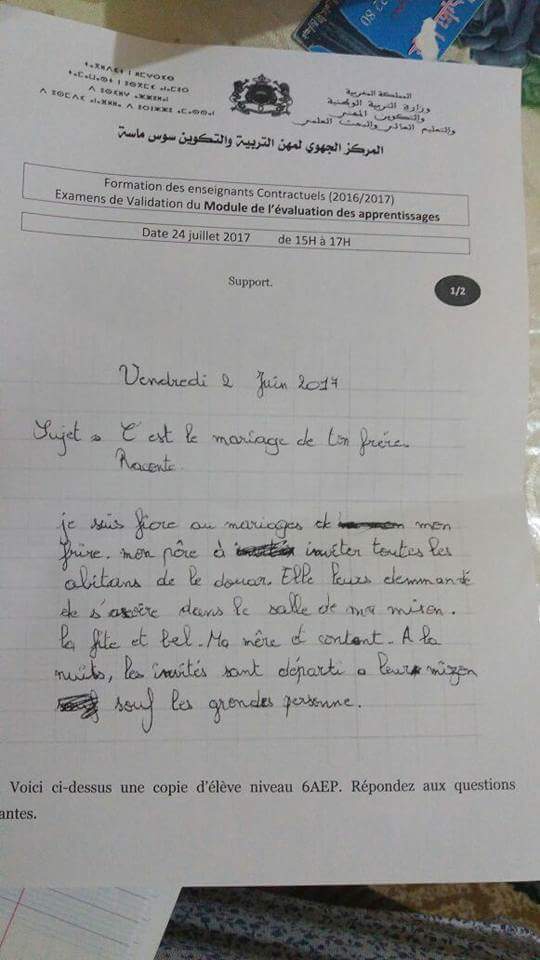 المملكة المغربية
وزارة التربية الوطنية
والتكوين المهني
والتعليم العالي والبحث العلمي
المركز الجهوي لمهن التربية والتكوين سوس ماسة
Formation des enseignants Contractuels (2016/2017)
Examens de Validation du Module de l'évaluation des apprentissages
Date 24 juillet 2017 de 15H à 17H
Support.
1/2
Vendredi 2 Juin 2017
Sujet : C'est le mariage de ton frère.
Raconte.
je suis fiore au mariages de mon
frire. mon pôre à inviter toutes les
abitans de le douar. Elle leurs demmande
de s'asoire dans le salle de ma mison.
la fite et bel. Ma mère et content. A la
nuits, les invités sant départi a leur mizon
souf les grendes personne.
Voici ci-dessus une copie d'élève niveau 6AEP. Répondez aux questions
antes.